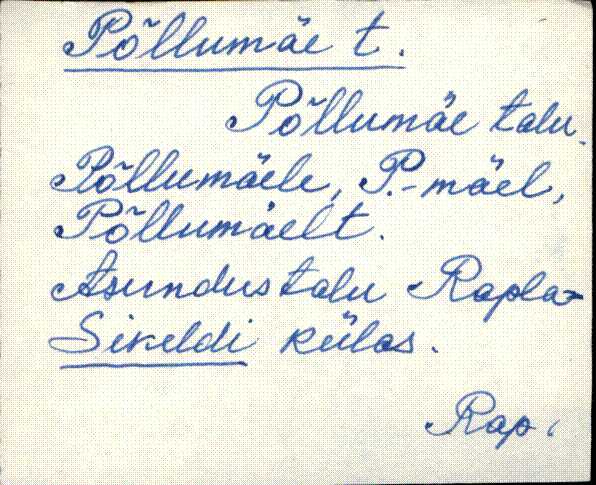 Põllumäe t.
Põllumäe talu.
Põllumäele, P.-mäel,
Põllumäelt.
Asundustalu Rapla-
Sikeldi külas.
Rap.